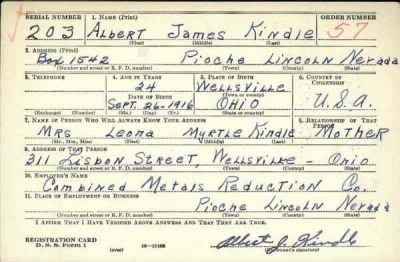 SERIAL NUMBER 1. NAME (Print) ORDER NUMBER
203 Albert James Kindle 57
(First) (Middle) (Last)
2. ADDRESS (Print)
Box 1542 Pioche Lincoln Nevada
(Number and street or R. F. D. number) (Town) (County) (State)
3. TELEPHONE 4. AGE IN YEARS 5. PLACE OF BIRTH 6. COUNTRY OF CITIZENSHIP
24 Wellsville
(Town or county)
DATE OF BIRTH
Sept. 26-1916 Ohio U.S.A.
(Exchange) (No.) (Mo.) (Day) (Yr.) (State or country)
7. NAME OF PERSON WHO WILL ALWAYS KNOW YOUR ADDRESS 8. RELATIONSHIP OF THAT PERSON
Mrs Leona Myrtle Kindle Mother
(Mr., Mrs., Miss) (First) (Middle) (Last)
9. ADDRESS OF THAT PERSON
311 Lisbon Street, Wellsville - Ohio
(Number and street or R. F. D. number) (Town) (County) (State)
10. EMPLOYER'S NAME
Combined Metals Reduction Co.
11. PLACE OF EMPLOYMENT OR BUSINESS
Pioche Lincoln Nevada
(Number and street or R. F. D. number) (Town) (County) (State)
I AFFIRM THAT I HAVE VERIFIED ABOVE ANSWERS AND THAT THEY ARE TRUE.
REGISTRATION CARD
D. S. S. Form 1 (over) 16-17105 Albert J. Kindle
(Registrant's signature)